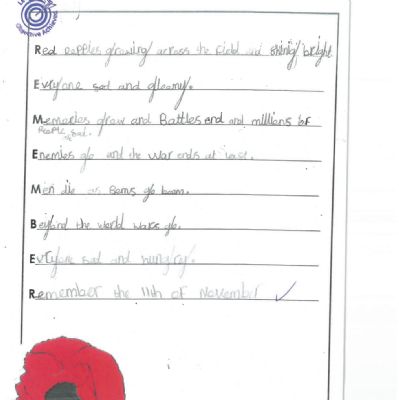 Objective Achieved
Red popples growing across the field and shinig bright
Evryone sad and gleamy.
Memories grow and Battles end and millions of
People sad.
Enemies go and the war ends at last.
Men die as Boms go boom.
Beyond the world wars go.
Evryone sad and hungry.
Remember the 11th of November